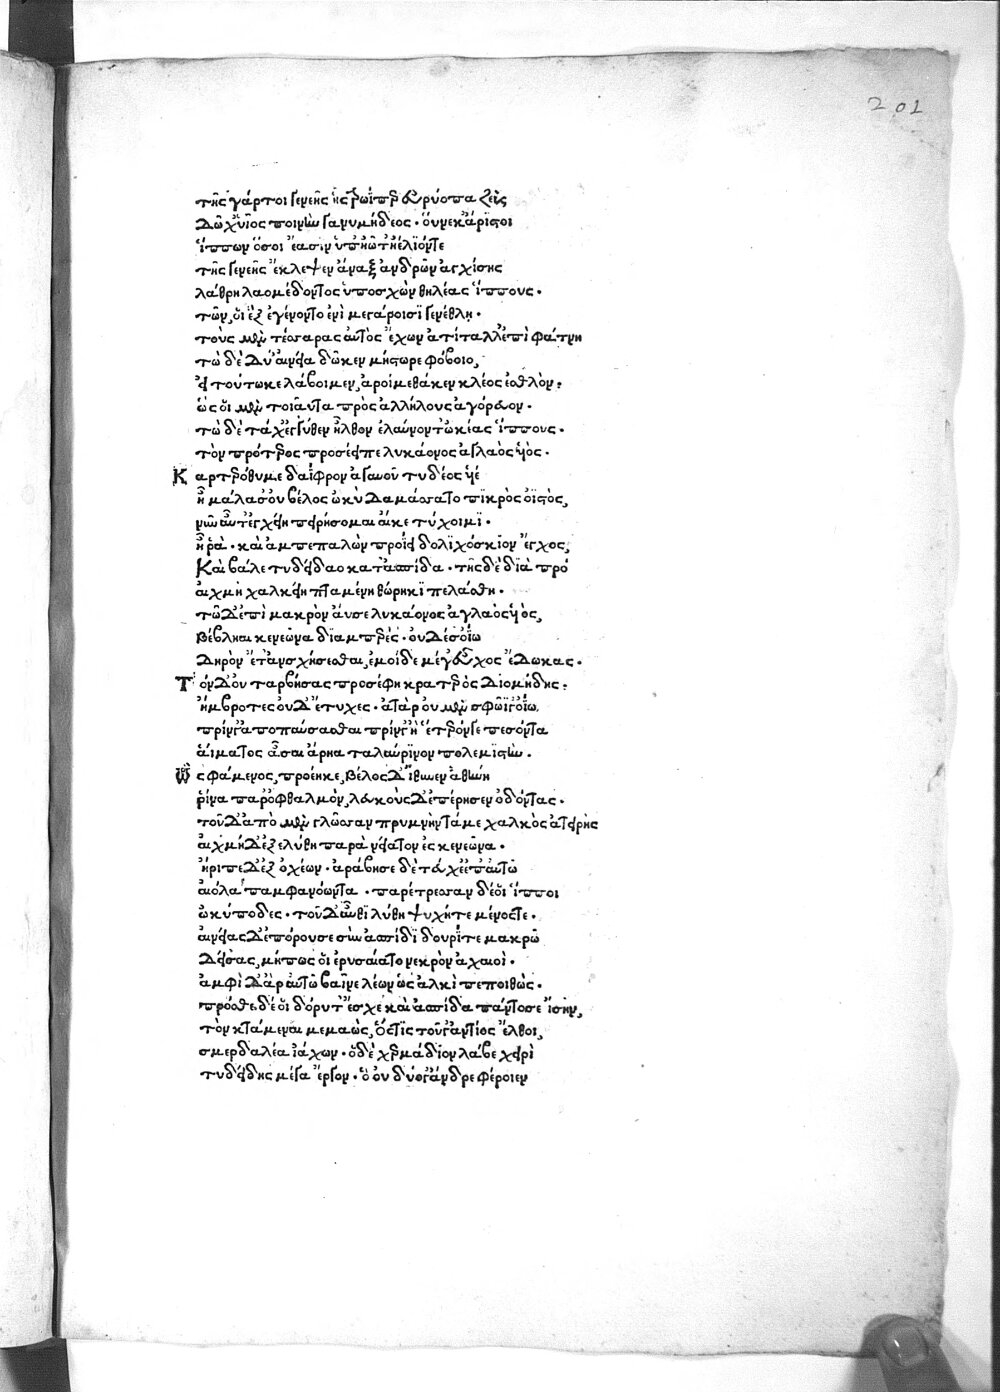 τῆς γάρ τοι γενεῆς ἧς τρωΐ περ εὐρύοπα ζεὺς
δῶχ' υἷος ποινὴν γανυμήδεος· οὕνεκ' ἄριστοι
ἵππων ὅσοι ἔασιν ὑπ' ἠῶ τ' ἠέλιόν τε
τῆς γενεῆς ἔκλεψεν ἄναξ ἀνδρῶν ἀγχίσης
λάθρη λαομέδοντος ὑποσχὼν θηλέας ἵππους.
τῶν, οἱ ἓξ ἐγένοντο ἐνὶ μεγάροισϊ γενέθλη.
τοὺς μὲν τέσσαρας αὐτὸς ἔχων ἀτίταλλ' ἐπὶ φάτνη
τὼ δὲ δύ' αἰνεία δῶκεν μήστωρε φόβοιο,
εἰ τούτω κε λάβοιμεν, ἀροίμεθά κεν κλέος ἐσθλόν.
ὡς οἱ μὲν τοιαῦτα πρὸς ἀλλήλους ἀγόρευον.
τὼ δὲ τάχ' ἐγγύθεν ἦλθον ἐλαύνοντ' ὠκέας ἵππους.
τὸν πρότερος προσέειπε λυκάονος ἀγλαὸς υἱός.
Καρτερόθυμε δαΐφρον ἀγαυοῦ τυδέος υἱέ
ἦ μάλα σ' οὐ βέλος ὠκὺ δαμάσσατο πικρὸς ὀϊστός,
νῦν αὖτ' ἐγχείη πειρήσομαι αἴκε τύχοιμϊ.
ἦ ῥά· καὶ ἀμπεπαλὼν προΐει δολϊχόσκιον ἔγχος,
Καὶ βάλε τυδείδαο κατ' ἀσπίδα· τῆς δὲ διὰ πρό
αἰχμὴ χαλκείη πταμένη θώρηκϊ πελάσθη.
τῶ δ' ἐπὶ μακρὸν ἄϋσε λυκάονος ἀγλαὸς υἱός,
βέβληαι κενεῶνα δϊαμπερές· οὐδέ σ' οἴω
δηρὸν ἔτ' ἀνσχήσεσθαι, ἐμοὶ δὲ μέγ' εὖχος ἔδωκας.
Τὸν δ' οὐ ταρβήσας προσέφη κρατερὸς διομήδης.
ἤμβροτες οὐδ' ἔτυχες· ἀτὰρ οὐ μὲν σφῶϊ γ' οἴω,
πρίν γ' ἀποπαύσασθαι πρίν γ' ἢ ἕτερόν γε πεσόντα
αἵματος ἆσαι ἄρηα ταλαύρϊνον πολεμϊστήν.
Ὣς φάμενος, προέηκε, βέλος δ' ἴθυνεν ἀθήνη
ῥίνα παρ' ὀφθαλμόν, λευκοὺς δ' ἐπέρησεν ὀδόντας.
τοῦ δ' ἀπὸ μὲν γλῶσσαν πρυμνὴν τάμε χαλκὸς ἀτειρὴς
αἰχμὴ δ' ἐξελύθη παρὰ νείατον ἐς κενεῶνα.
ἤριπε δ' ἐξ ὀχέων· ἀράβησε δὲ τεύχε' ἐπ' αὐτῶ
αἰόλα παμφανόωντα· παρέτρεσσαν δέ οἱ ἵπποι
ὠκύποδες· τοῦ δ' αὖθϊ λύθη ψυχή τε μένος τε.
αἰνείας δ' ἐπόρουσε σὺν ἀσπίδϊ δουρί τε μακρῶ
δείσας, μήπως οἱ ἐρυσαίατο νεκρὸν ἀχαιοί.
ἀμφὶ δ' ἄρ' αὐτῶ βαῖνε λέων ὡς ἀλκὶ πεποιθώς.
πρόσθε δέ οἱ δόρυ τ' ἔσχε καὶ ἀσπίδα πάντοσε ἴσην,
τὸν κτάμεναι μεμαώς, ὅς τϊς τοῦ γ' ἀντίος ἔλθοι,
σμερδαλέα ἰάχων· ὁ δὲ χερμάδϊον λάβε χειρὶ
τυδείδης μέγα ἔργον· ὃ οὐ δύο γ' ἄνδρε φέροιεν